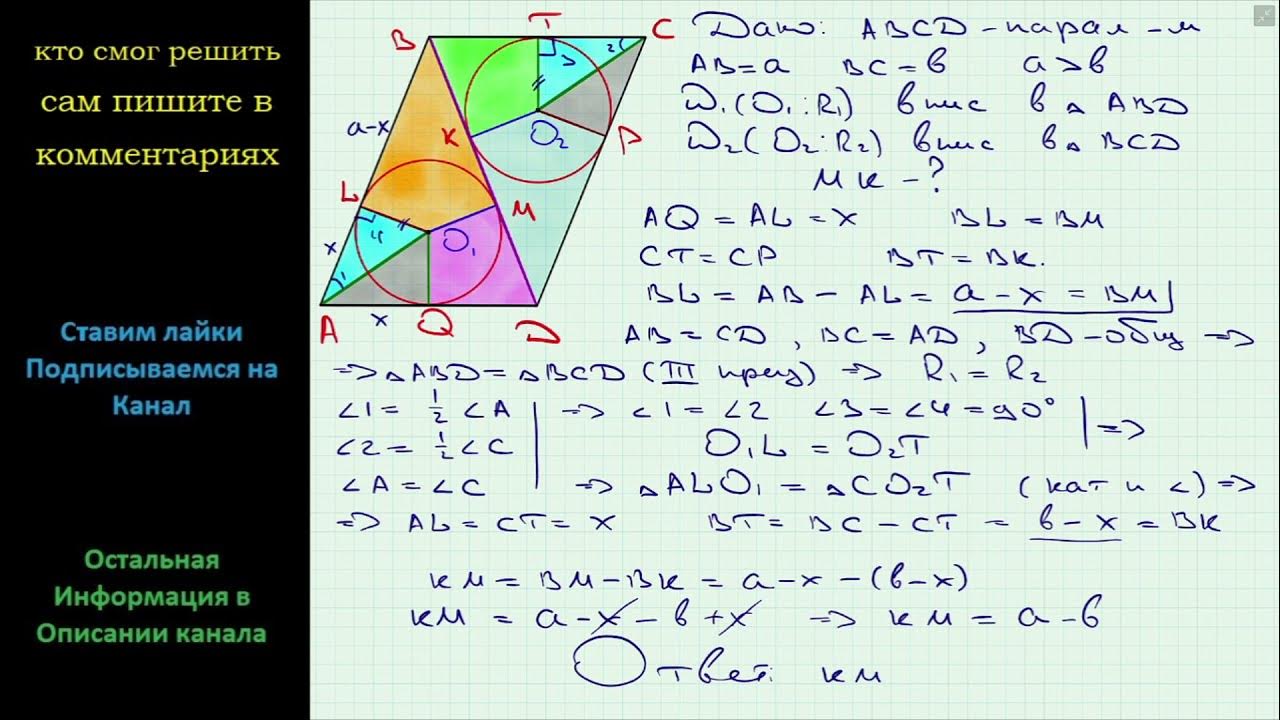 кто смог решить
сам пишите в
комментариях
Ставим лайки
Подписываемся на
Канал
Остальная
Информация в
Описании канала
B T C
a-x K O₂ P
L M
x 4 O₁
1 2 3
A x Q D
Дано: ABCD - парал - м
AB = a BC = b a > b
W₁(O₁; R₁) впис в △ ABD
W₂(O₂; R₂) впис в △ BCD
MK - ?
AQ = AL = x BL = BM
CT = CP BT = BK.
BL = AB - AL = a - x = BM
AB = CD, BC = AD, BD - общ =>
=> △ABD = △BCD (III призн) => R₁ = R₂
∠1 = ½ ∠A => ∠1 = ∠2 ∠3 = ∠4 = 90° =>
∠2 = ½ ∠C O₁L = O₂T
∠A = ∠C => △ALO₁ = △CO₂T (кат и ∠) =>
=> AL = CT = x BT = BC - CT = b - x = BK
KM = BM - BK = a - x - (b - x)
KM = a - x - b + x => KM = a - b
Ответ: KM